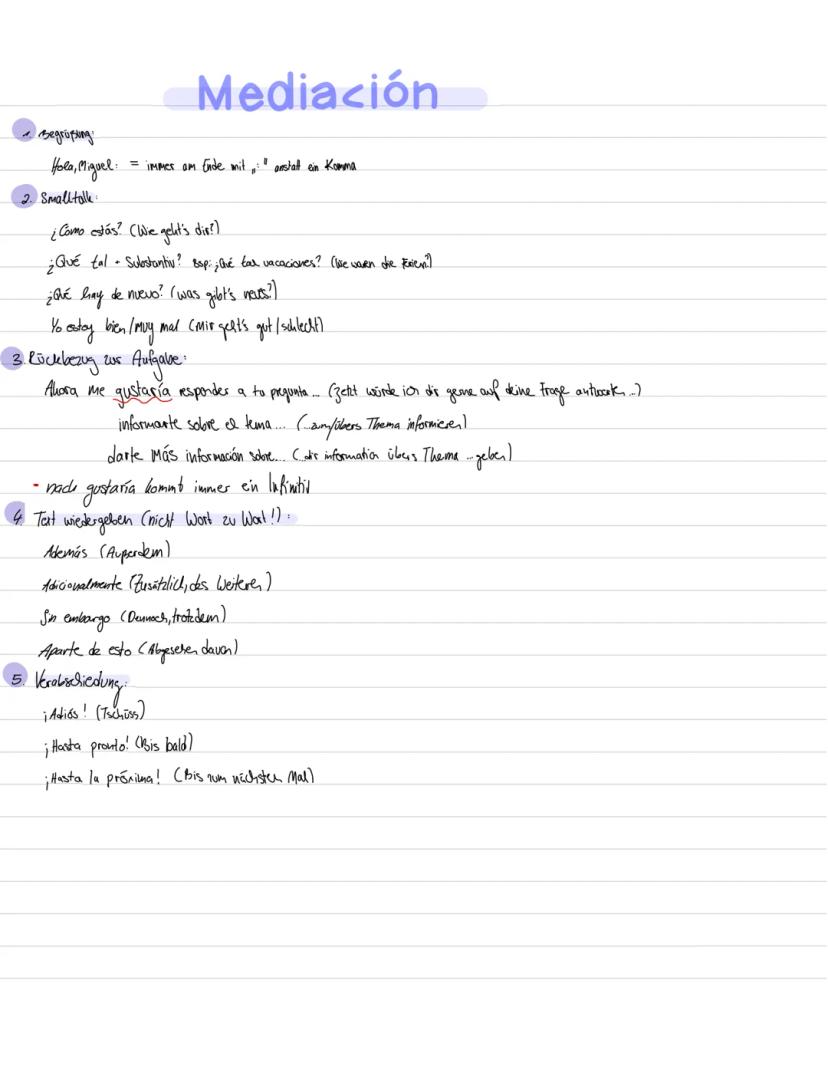 Mediación
1. Begrüßung:
Hola, Miguel: = immer am Ende mit „:" anstatt ein Komma
2. Smalltalk:
¿Cómo estás? (Wie geht's dir?)
¿Qué tal + Substantiv? Bsp.: ¿Qué tal vacaciones? (Wie waren die Ferien?)
¿Qué hay de nuevo? (was gibt's neues?)
Yo estoy bien/muy mal (Mir geht's gut/schlecht)
3. Rückbezug zur Aufgabe:
Ahora me gustaría responder a tu pregunta ... (Jetzt würde ich dir gerne auf deine Frage antworten ...)
informarte sobre el tema... (...zum/übers Thema informieren)
darte más información sobre... (...dir information übers Thema ... geben)
- nach gustaría kommt immer ein Infinitiv
4. Text wiedergeben (nicht Wort zu Wort!):
Además (Außerdem)
Adicionalmente (Zusätzlich, des Weiteren)
Sin embargo (Dennoch, trotzdem)
Aparte de esto (Abgesehen davon)
5. Verabschiedung:
¡Adiós! (Tschüss)
¡Hasta pronto! (Bis bald)
¡Hasta la próxima! (Bis zum nächsten Mal)